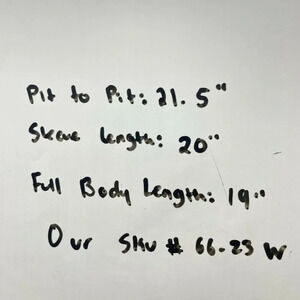 Pit to Pit: 21.5"
Sleeve Length: 20"
Full Body Length: 19"
Our SKU # 66-23 W